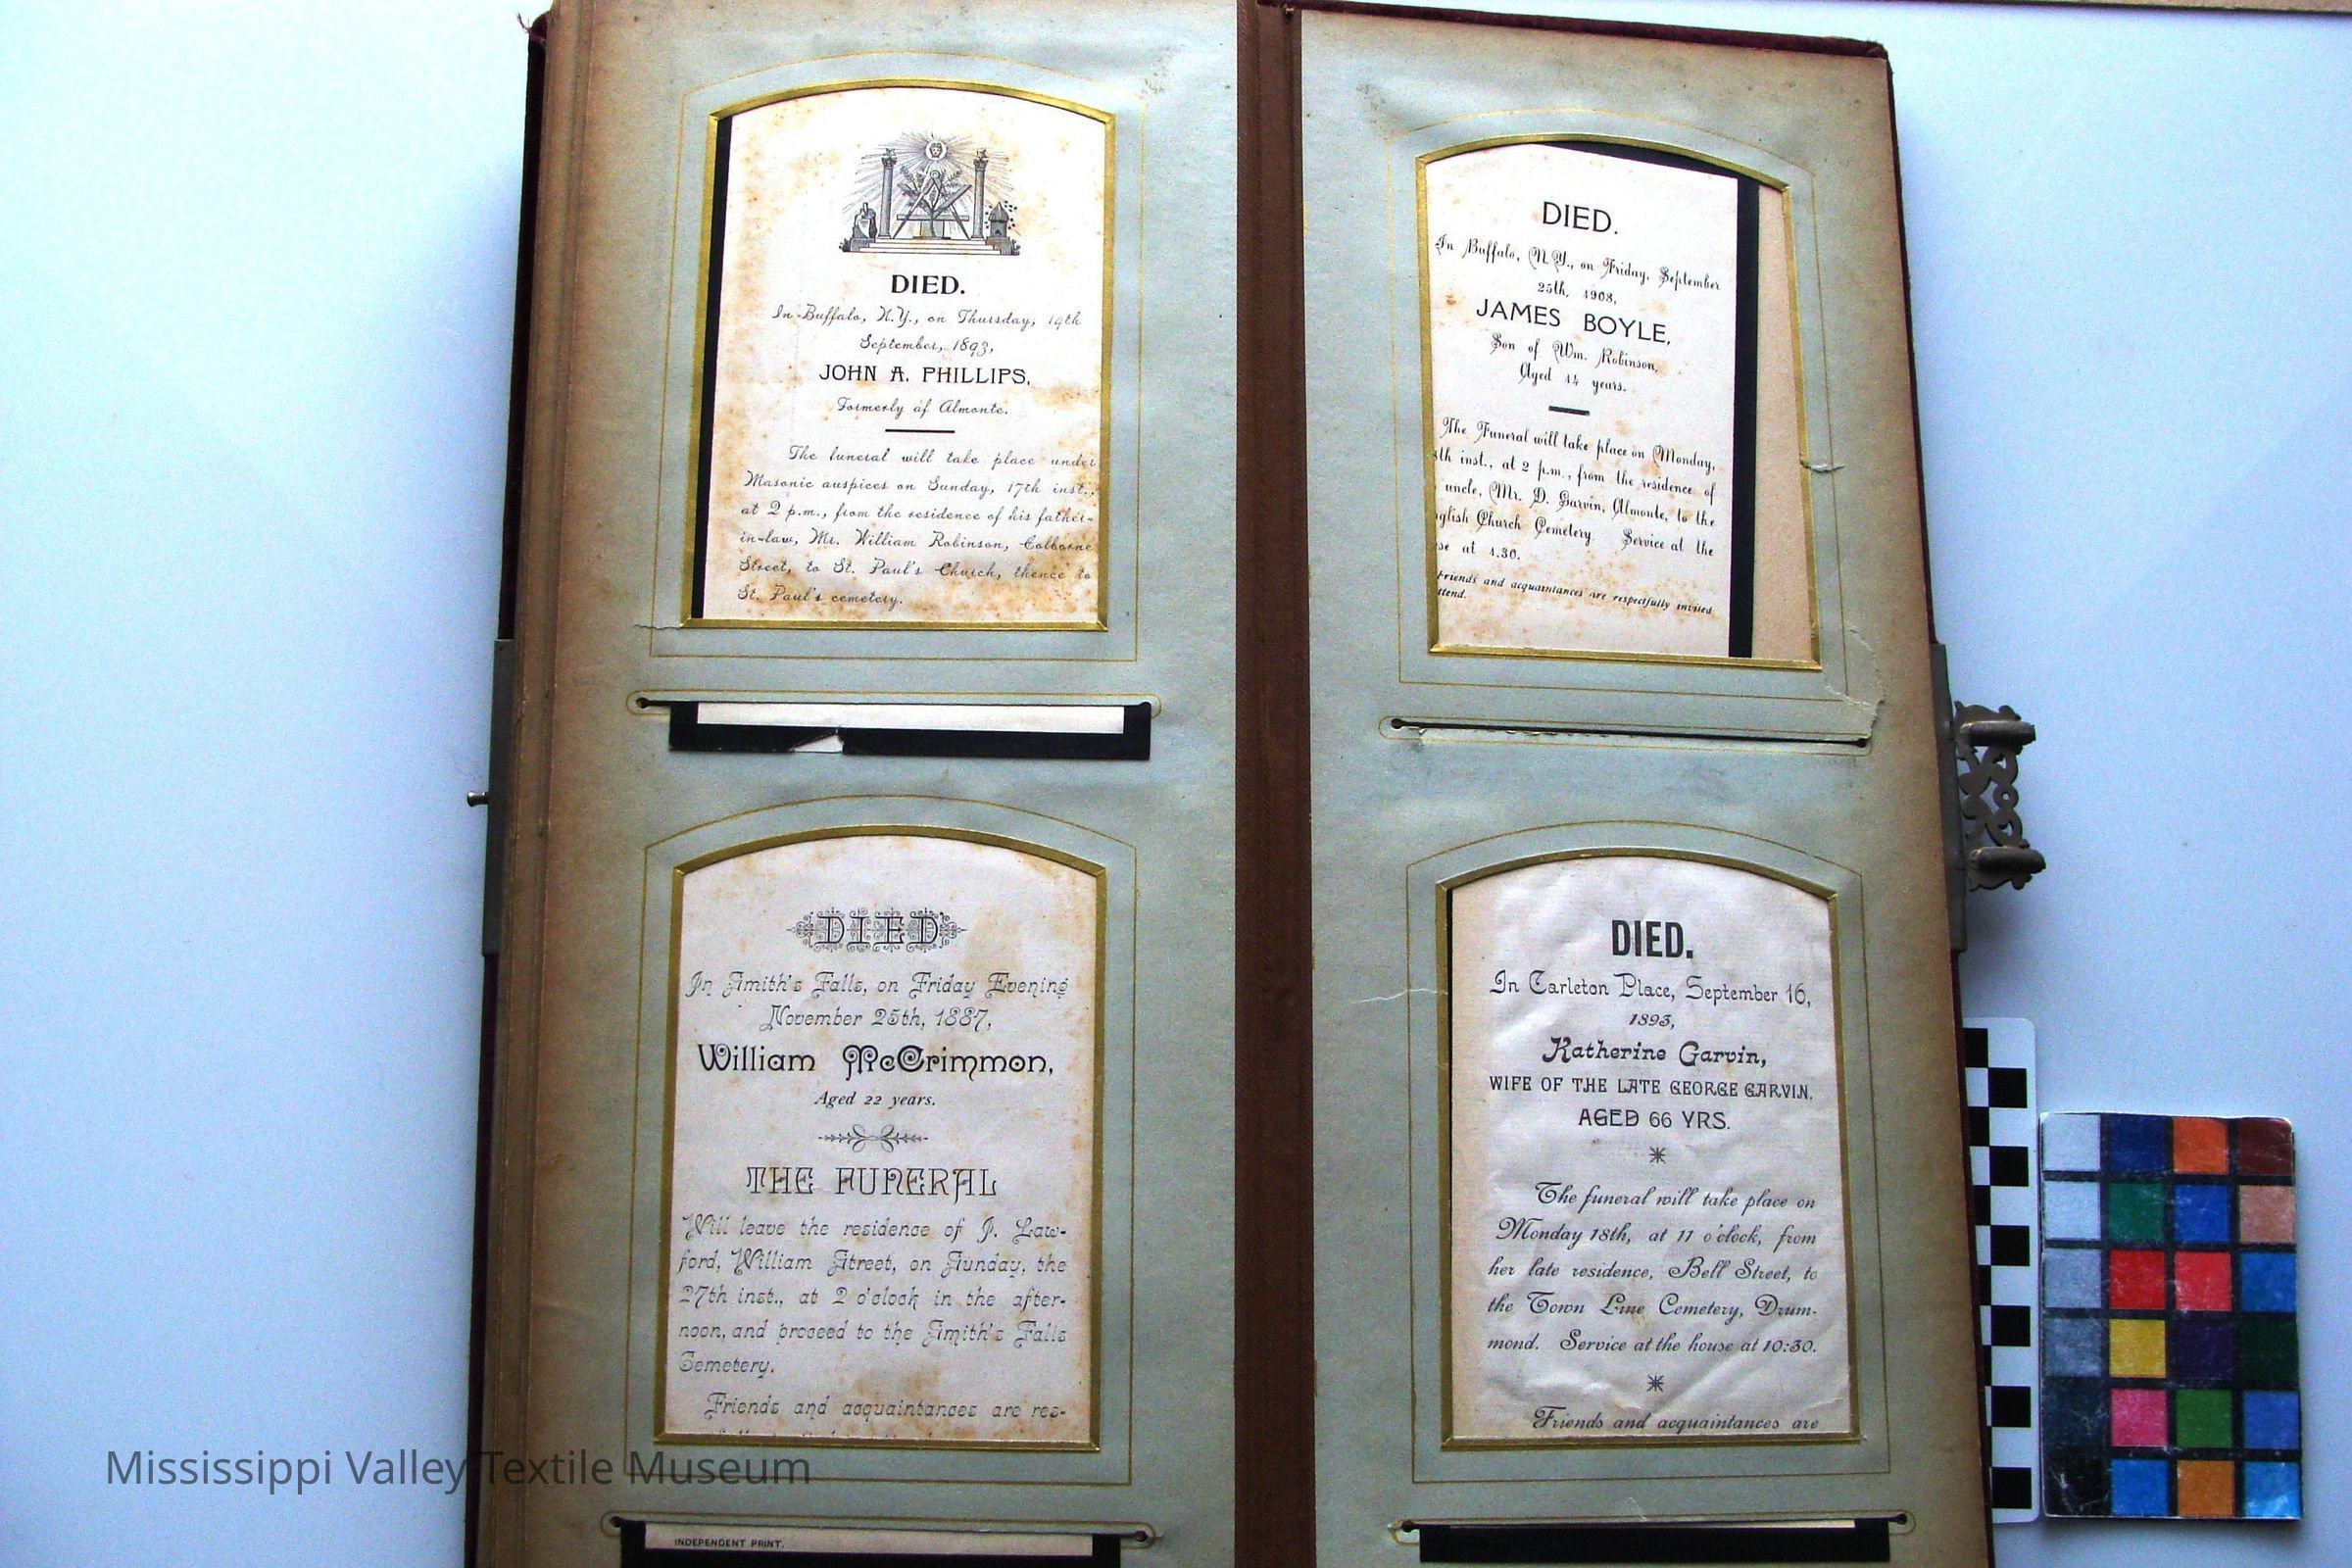 DIED.
In Buffalo, N.Y., on Thursday, 14th
September, 1893,
JOHN A. PHILLIPS,
Formerly af Almonte.
The funeral will take place under
Masonic auspices on Sunday, 17th inst.,
at 2 p.m., from the residence of his father-
in-law, Mr. William Robinson, Colborne
Street, to St. Paul's Church, thence to
St. Paul's cemetery.
DIED
In Smith's Falls, on Friday Evening
November 25th, 1887,
William McCrimmon,
Aged 22 years.
THE FUNERAL
Will leave the residence of J. Law-
ford, William Street, on Sunday, the
27th inst., at 2 o'clock in the after-
noon, and proceed to the Smith's Falls
Cemetery.
Friends and acquaintances are res-
INDEPENDENT PRINT.
DIED.
In Buffalo, N.Y., on Friday, September
25th, 1908,
JAMES BOYLE,
Son of Wm. Robinson,
Aged 14 years.
The Funeral will take place on Monday,
th inst., at 2 p.m., from the residence of
uncle, Mr. D. Garvin, Almonte, to the
glish Church Cemetery. Service at the
se at 1.30.
Friends and acquaintances are respectfully invited
ttend.
DIED.
In Carleton Place, September 16,
1893,
Katherine Garvin,
WIFE OF THE LATE GEORGE GARVIN.
AGED 66 YRS.
The funeral will take place on
Monday 18th, at 11 o'clock, from
her late residence, Bell Street, to
the Town Line Cemetery, Drum-
mond. Service at the house at 10:30.
Friends and acquaintances are
Mississippi Valley Textile Museum